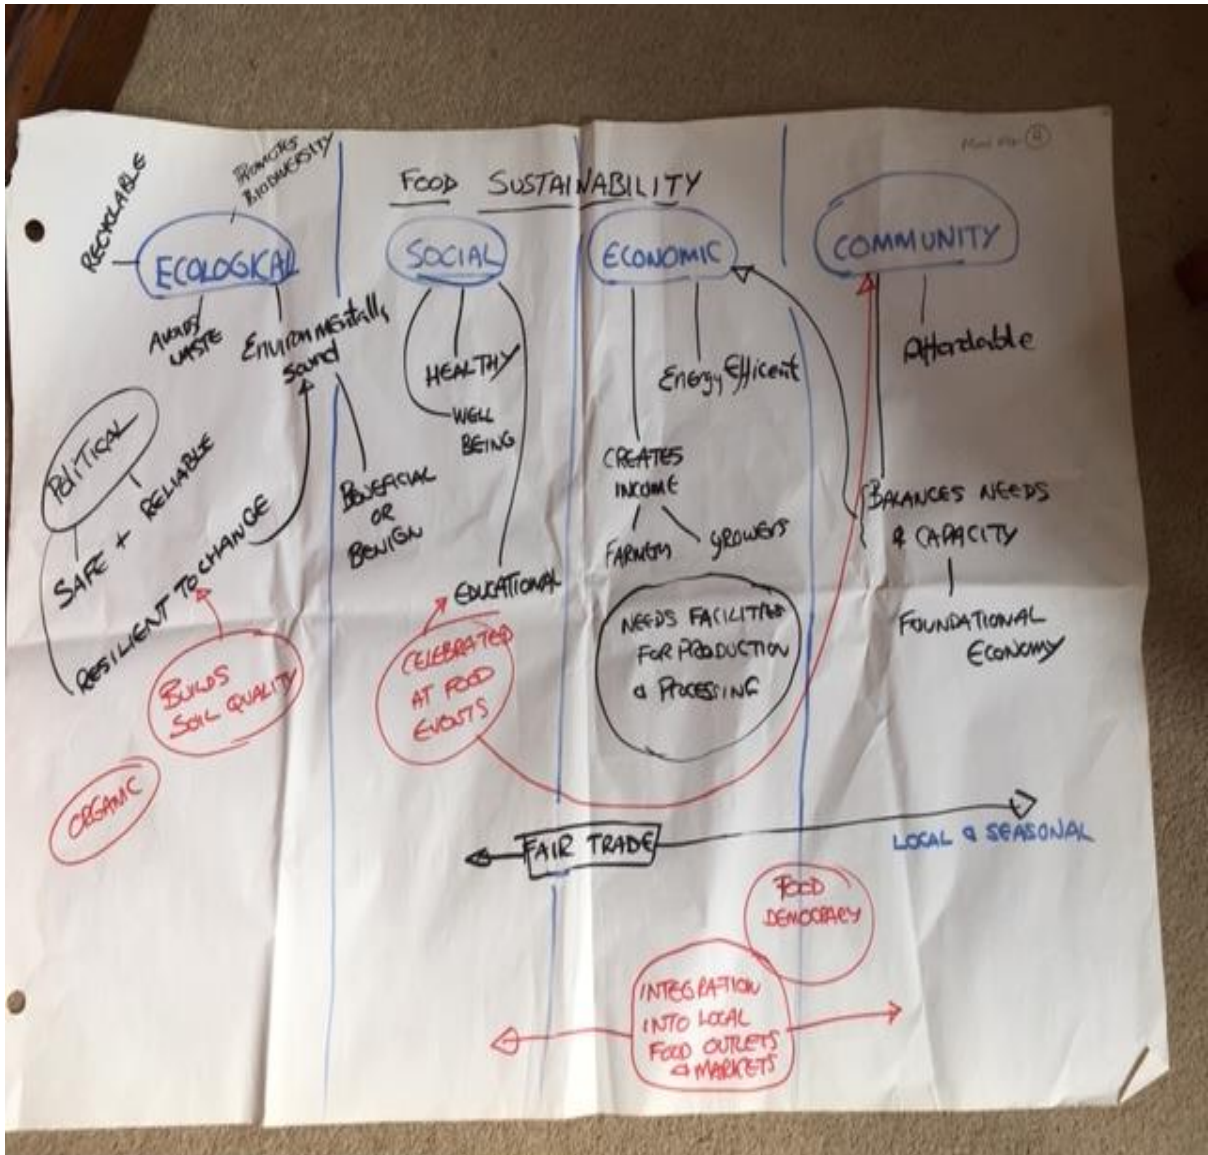 FOOD SUSTAINABILITY
RECYCLABLE
PROMOTES
BIODIVERSITY
ECOLOGICAL
AVOIDS
WASTE
Environmentally
Sound
BENEFICIAL
OR
BENIGN
POLITICAL
SAFE + RELIABLE
RESILIENT TO CHANGE
BUILDS
SOIL QUALITY
ORGANIC
SOCIAL
HEALTHY
WELL
BEING
EDUCATIONAL
CELEBRATED
AT FOOD
EVENTS
ECONOMIC
Energy Efficent
CREATES
INCOME
FARMERS
GROWERS
NEEDS FACILITIES
FOR PRODUCTION
& PROCESSING
COMMUNITY
Affordable
BALANCES NEEDS
& CAPACITY
FOUNDATIONAL
ECONOMY
FAIR TRADE
LOCAL & SEASONAL
FOOD
DEMOCRACY
INTEGRATION
INTO LOCAL
FOOD OUTLETS
& MARKETS